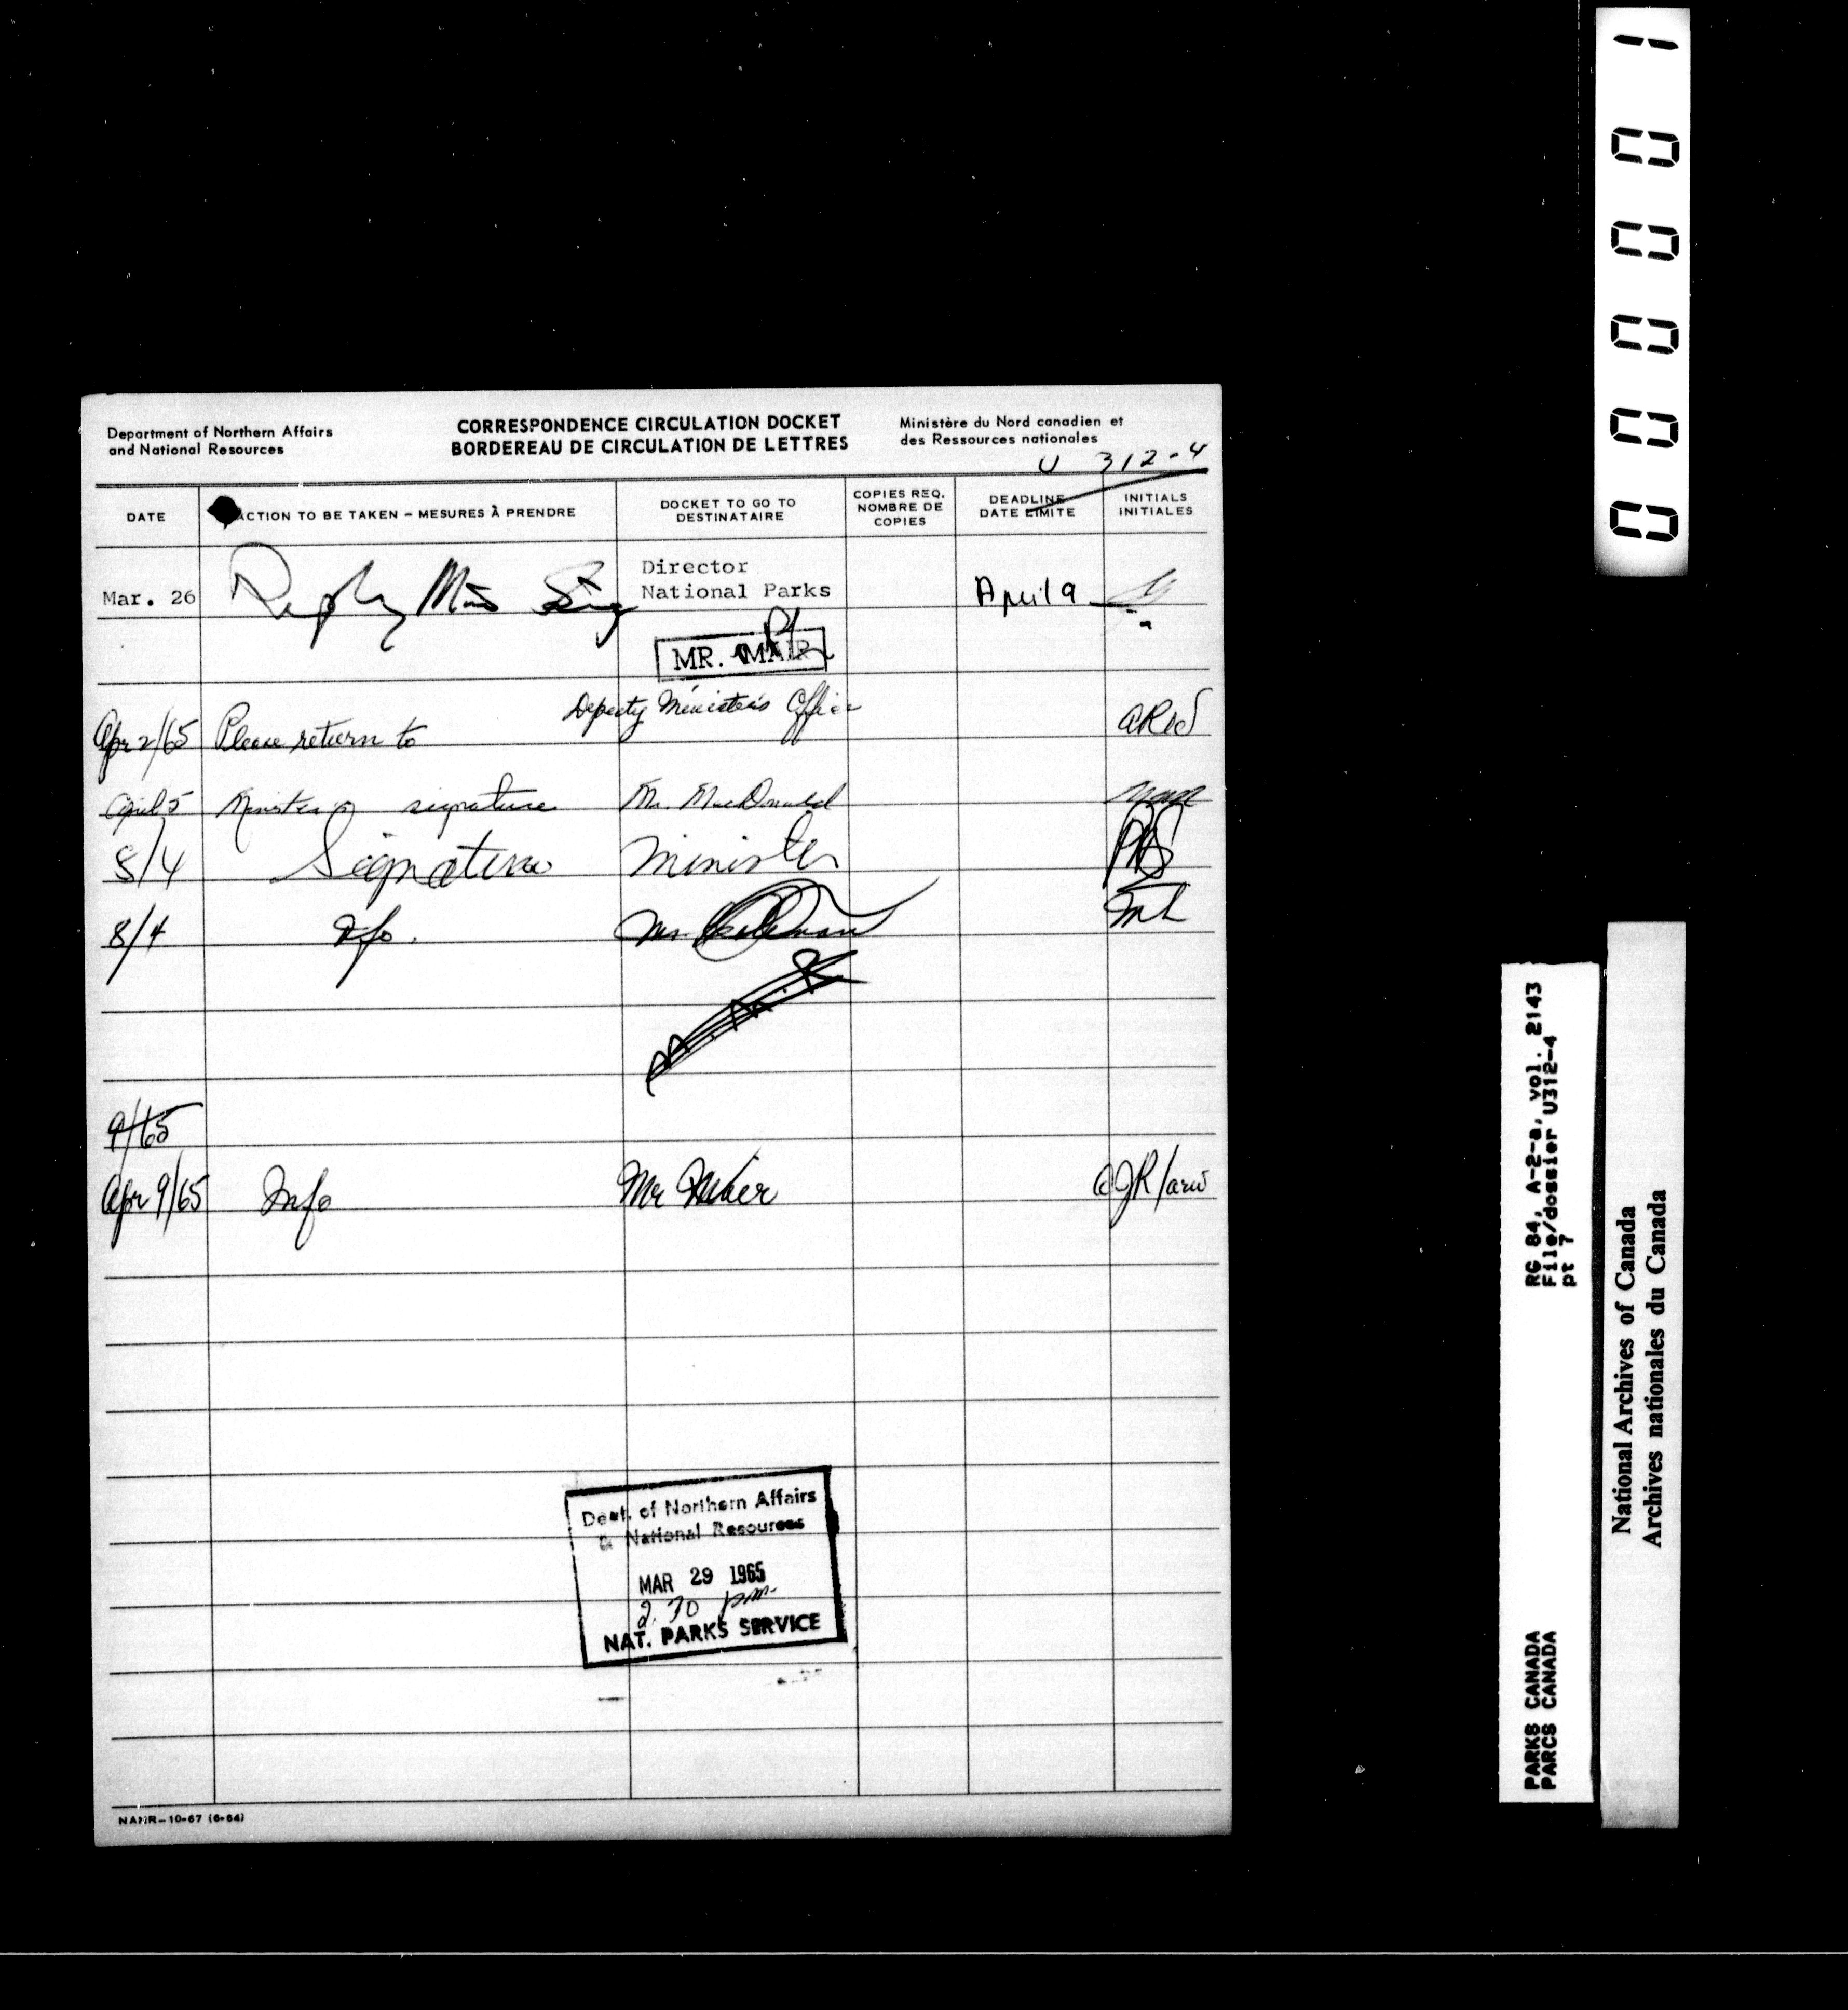 Department of Northern Affairs
and National Resources
CORRESPONDENCE CIRCULATION DOCKET
BORDEREAU DE CIRCULATION DE LETTRES
Ministère du Nord canadien et
des Ressources nationales
U 312-4
DATE
ACTION TO BE TAKEN – MESURES À PRENDRE
DOCKET TO GO TO
DESTINATAIRE
COPIES REQ.
NOMBRE DE
COPIES
DEADLINE
DATE LIMITE
INITIALS
INITIALES
Mar. 26 Reply Min Sig
Director
National Parks
April 9
MR. MAIR
Deputy Minister's Office
Apr 2/65 Please return to
April 5 Minister's signature Mr. MacDonald
8/4 Signature Minister
8/4 Info.
9/65
Apr 9/65 Info Mr
Dept. of Northern Affairs
& National Resources
MAR 29 1965
2.30 pm.
NAT. PARKS SERVICE
NANR–10-67 (6-64)
000001
RG 84, A-2-a, vol. 2143
File/dossier U312-4
pt 7
PARKS CANADA
PARCS CANADA
National Archives of Canada
Archives nationales du Canada